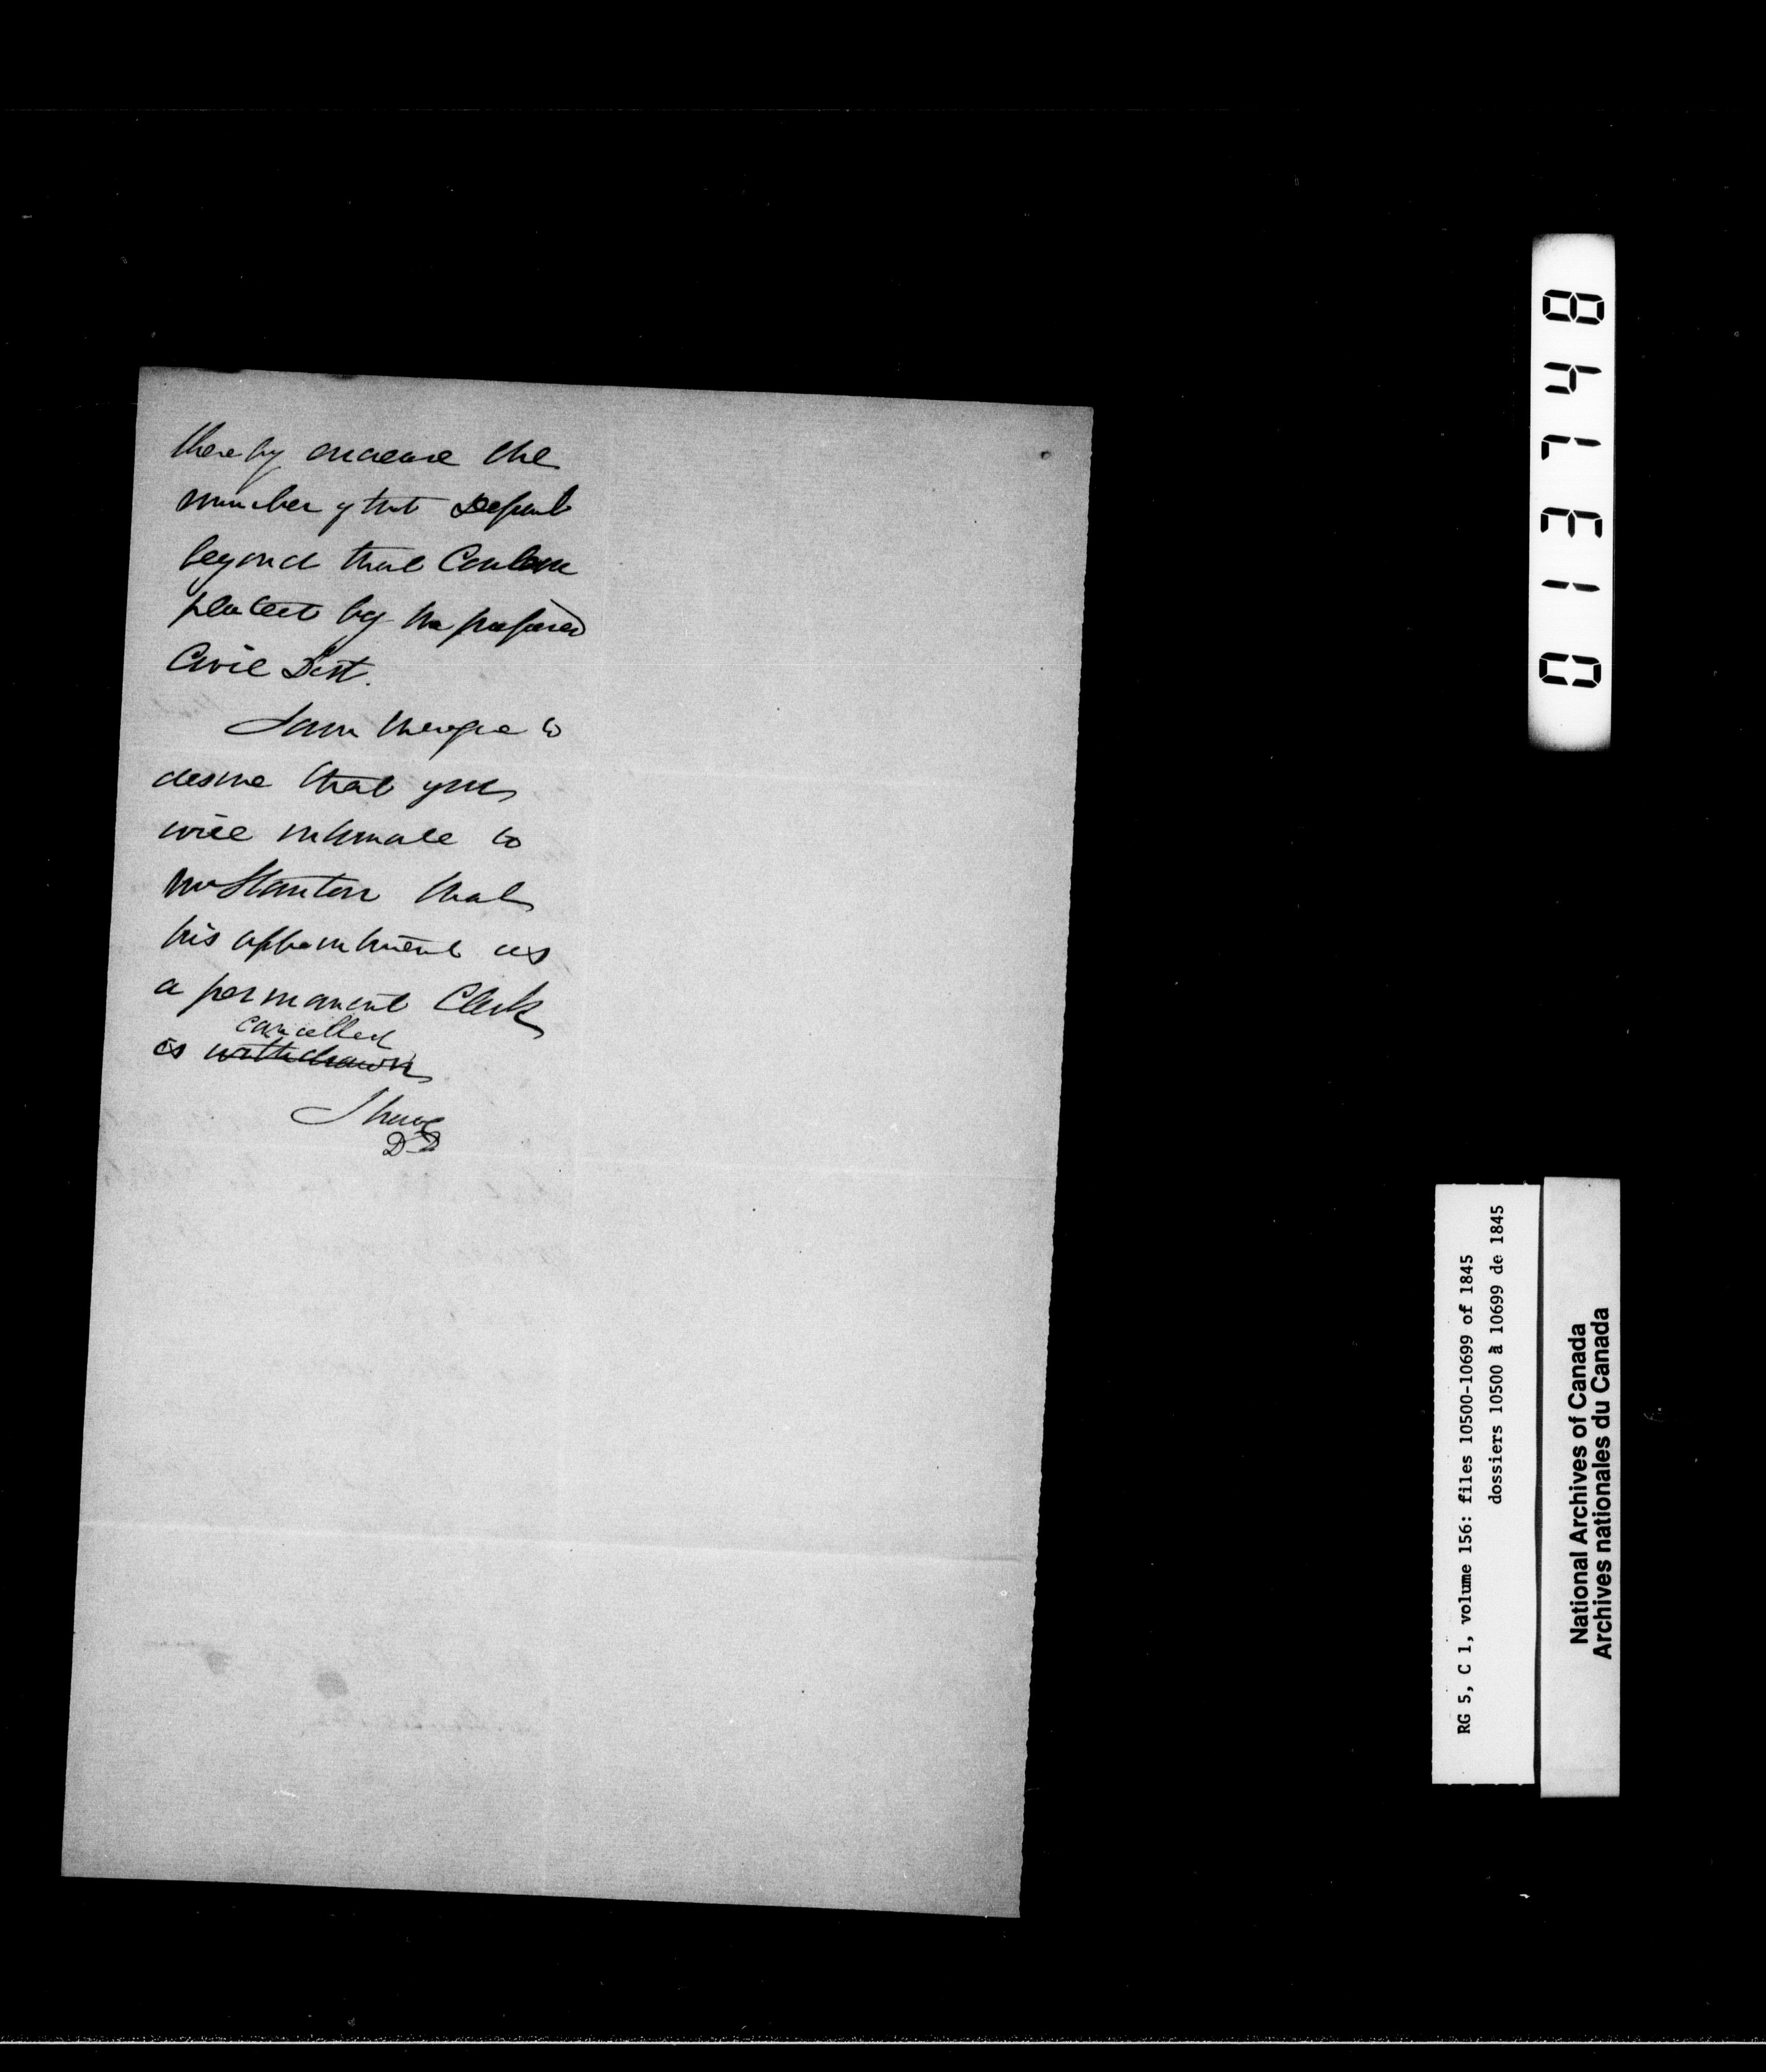 thereby encrease the
number of that Depart
beyond that Contem
plated by the proposed
Civil List.
I am therefore to
desire that you
will intimate to
Mr Stanton that
his appointment as
a permanent Clerk
cancelled
is withdrawn
I have
DD
013748
RG 5, C 1, volume 156: files 10500-10699 of 1845
dossiers 10500 à 10699 de 1845
National Archives of Canada
Archives nationales du Canada